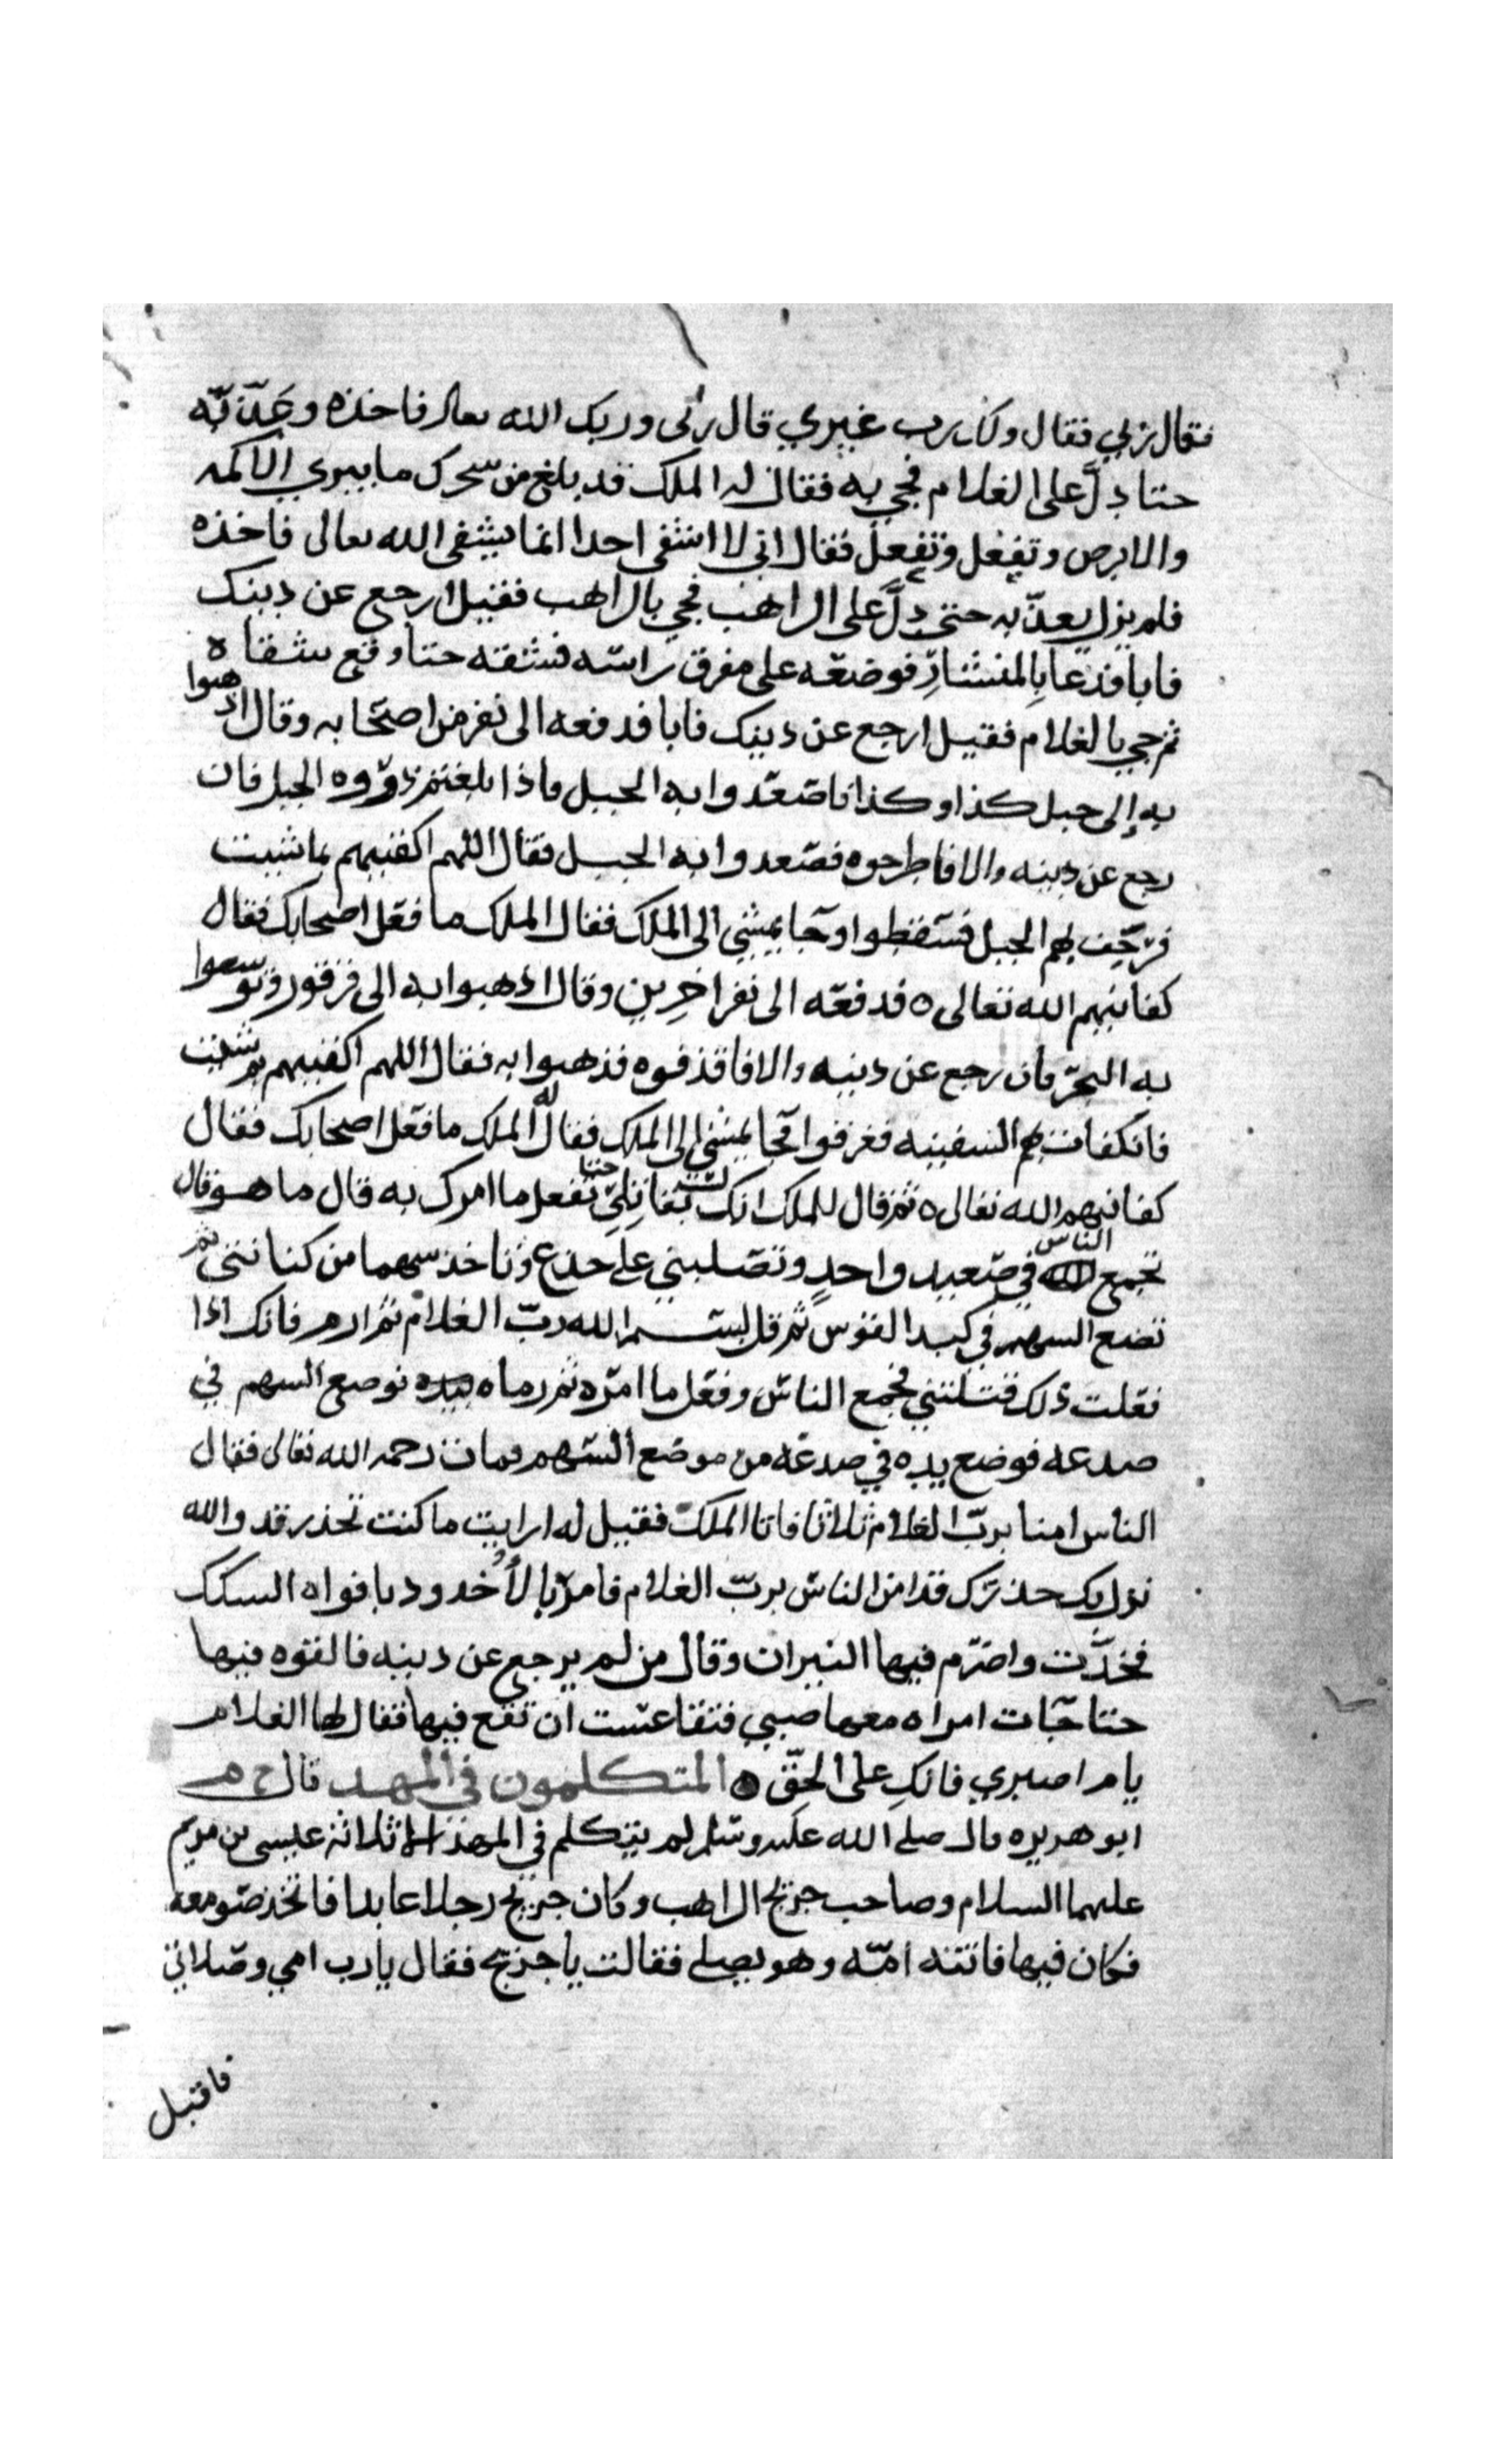 فقال ربي فقال ولك رب غيري قال ربي وربك الله تعالى فاخذه وعذبه
حتا دل على الغلام فجي به فقال له الملك قد بلغ من سحرك ما يبري الاكمه
والابرص وتفعل وتفعل فقال اني لا اشفي احدا انما يشفي الله تعالى فاخذه
فلم يزل يعذبه حتى دل على الراهب فجي بالراهب فقيل ارجع عن دينك
فابا فدعا بالمنشار فوضعه على مفرق راسه فشقه حتا وقع شقاه
ثم جي بالغلام فقيل ارجع عن دينك فابا فدفعه الى نفر من اصحابه وقال اذهبوا
به إلى جبل كذا وكذا فاصعدوا به الجبل فاذا بلغتم ذروه الجبل فان
رجع عن دينه والا فاطرحوه فصعدوا به الجبل فقال اللهم اكفنيهم بما شيت
فرجف بهم الجبل فسقطوا وجا يمشي الى الملك فقال الملك ما فعل اصحابك فقال
كفانيهم الله تعالى ه فدفعه الى نفر اخرين وقال اذهبوا به الى قرقور وتوسعوا
به البحر فان رجع عن دينه والا فاقذفوه فذهبوا به فقال اللهم اكفنيهم بم شئت
فانكفات بهم السفينه فغرقوا وجا يمشي الى الملك فقال له الملك ما فعل اصحابك فقال
كفانيهم الله تعالى ه ثم قال للملك انك لست بقاتلي حتا تفعل ما امرك به قال ما هو قال
تجمع الناس في صعيد واحد وتصلبني على جذع وتاخذ سهما من كنانتي ثم
تضع السهم في كبد القوس ثم قل بسم الله رب الغلام ثم ارم فانك اذا
فعلت ذلك قتلتني فجمع الناس وفعل ما امره ثم رماه بيده فوضع السهم في
صدغه فوضع يده في صدغه من موضع السهم فمات رحمه الله تعالى فقال
الناس امنا برب الغلام ثلاثا فاتا الملك فقيل له ارايت ما كنت تحذر قد والله
نزل بك حذرك قد امن الناس برب الغلام فامر بالأخدود بافواه السكك
فخدت واضرم فيها النيران وقال من لم يرجع عن دينه فالقوه فيها
حتا جات امراه معها صبي فتقاعست ان تقع فيها فقال لها الغلام
يام اصبري فانك على الحق ه المتكلمون في المهد قال خ م
ابو هريره قال صلى الله عليه وسلم لم يتكلم في المهد الا ثلاثة عيسى بن مريم
عليهما السلام وصاحب جريج الراهب وكان جريج رجلا عابدا فاتخذ صومعه
فكان فيها فاتته امه وهو يصلي فقالت يا جريج فقال يارب امي وصلاتي
فاقبل